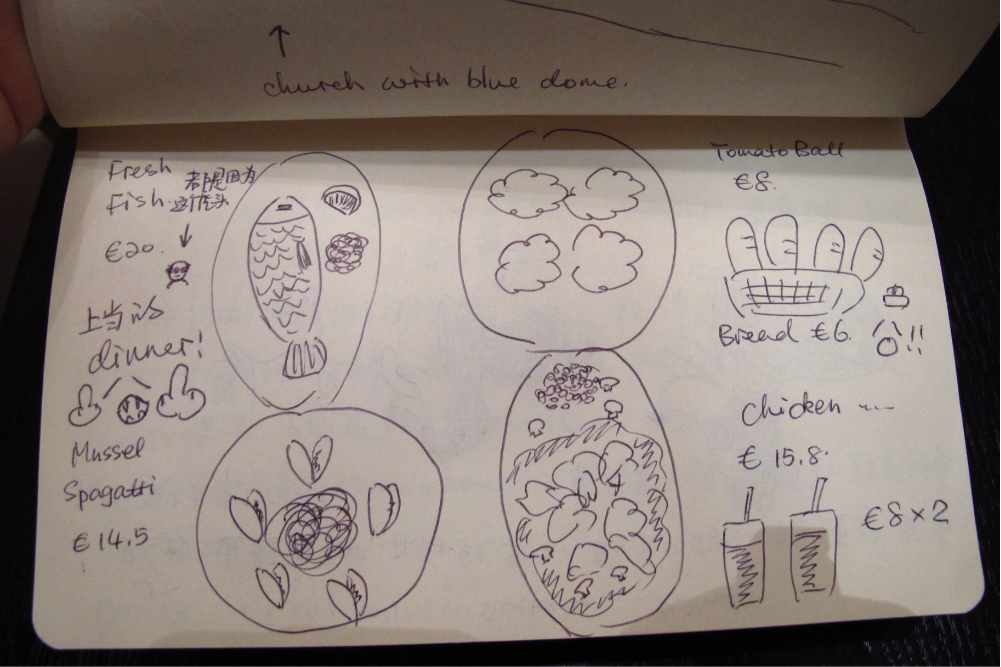 church with blue dome.
Fresh
Fish.
都是因为
这个老头
€20.
上当的
dinner!
Mussel
Spagatti
€14.5
Tomato Ball
€8.
Bread €6.
!!
chicken ....
€15.8.
€8×2